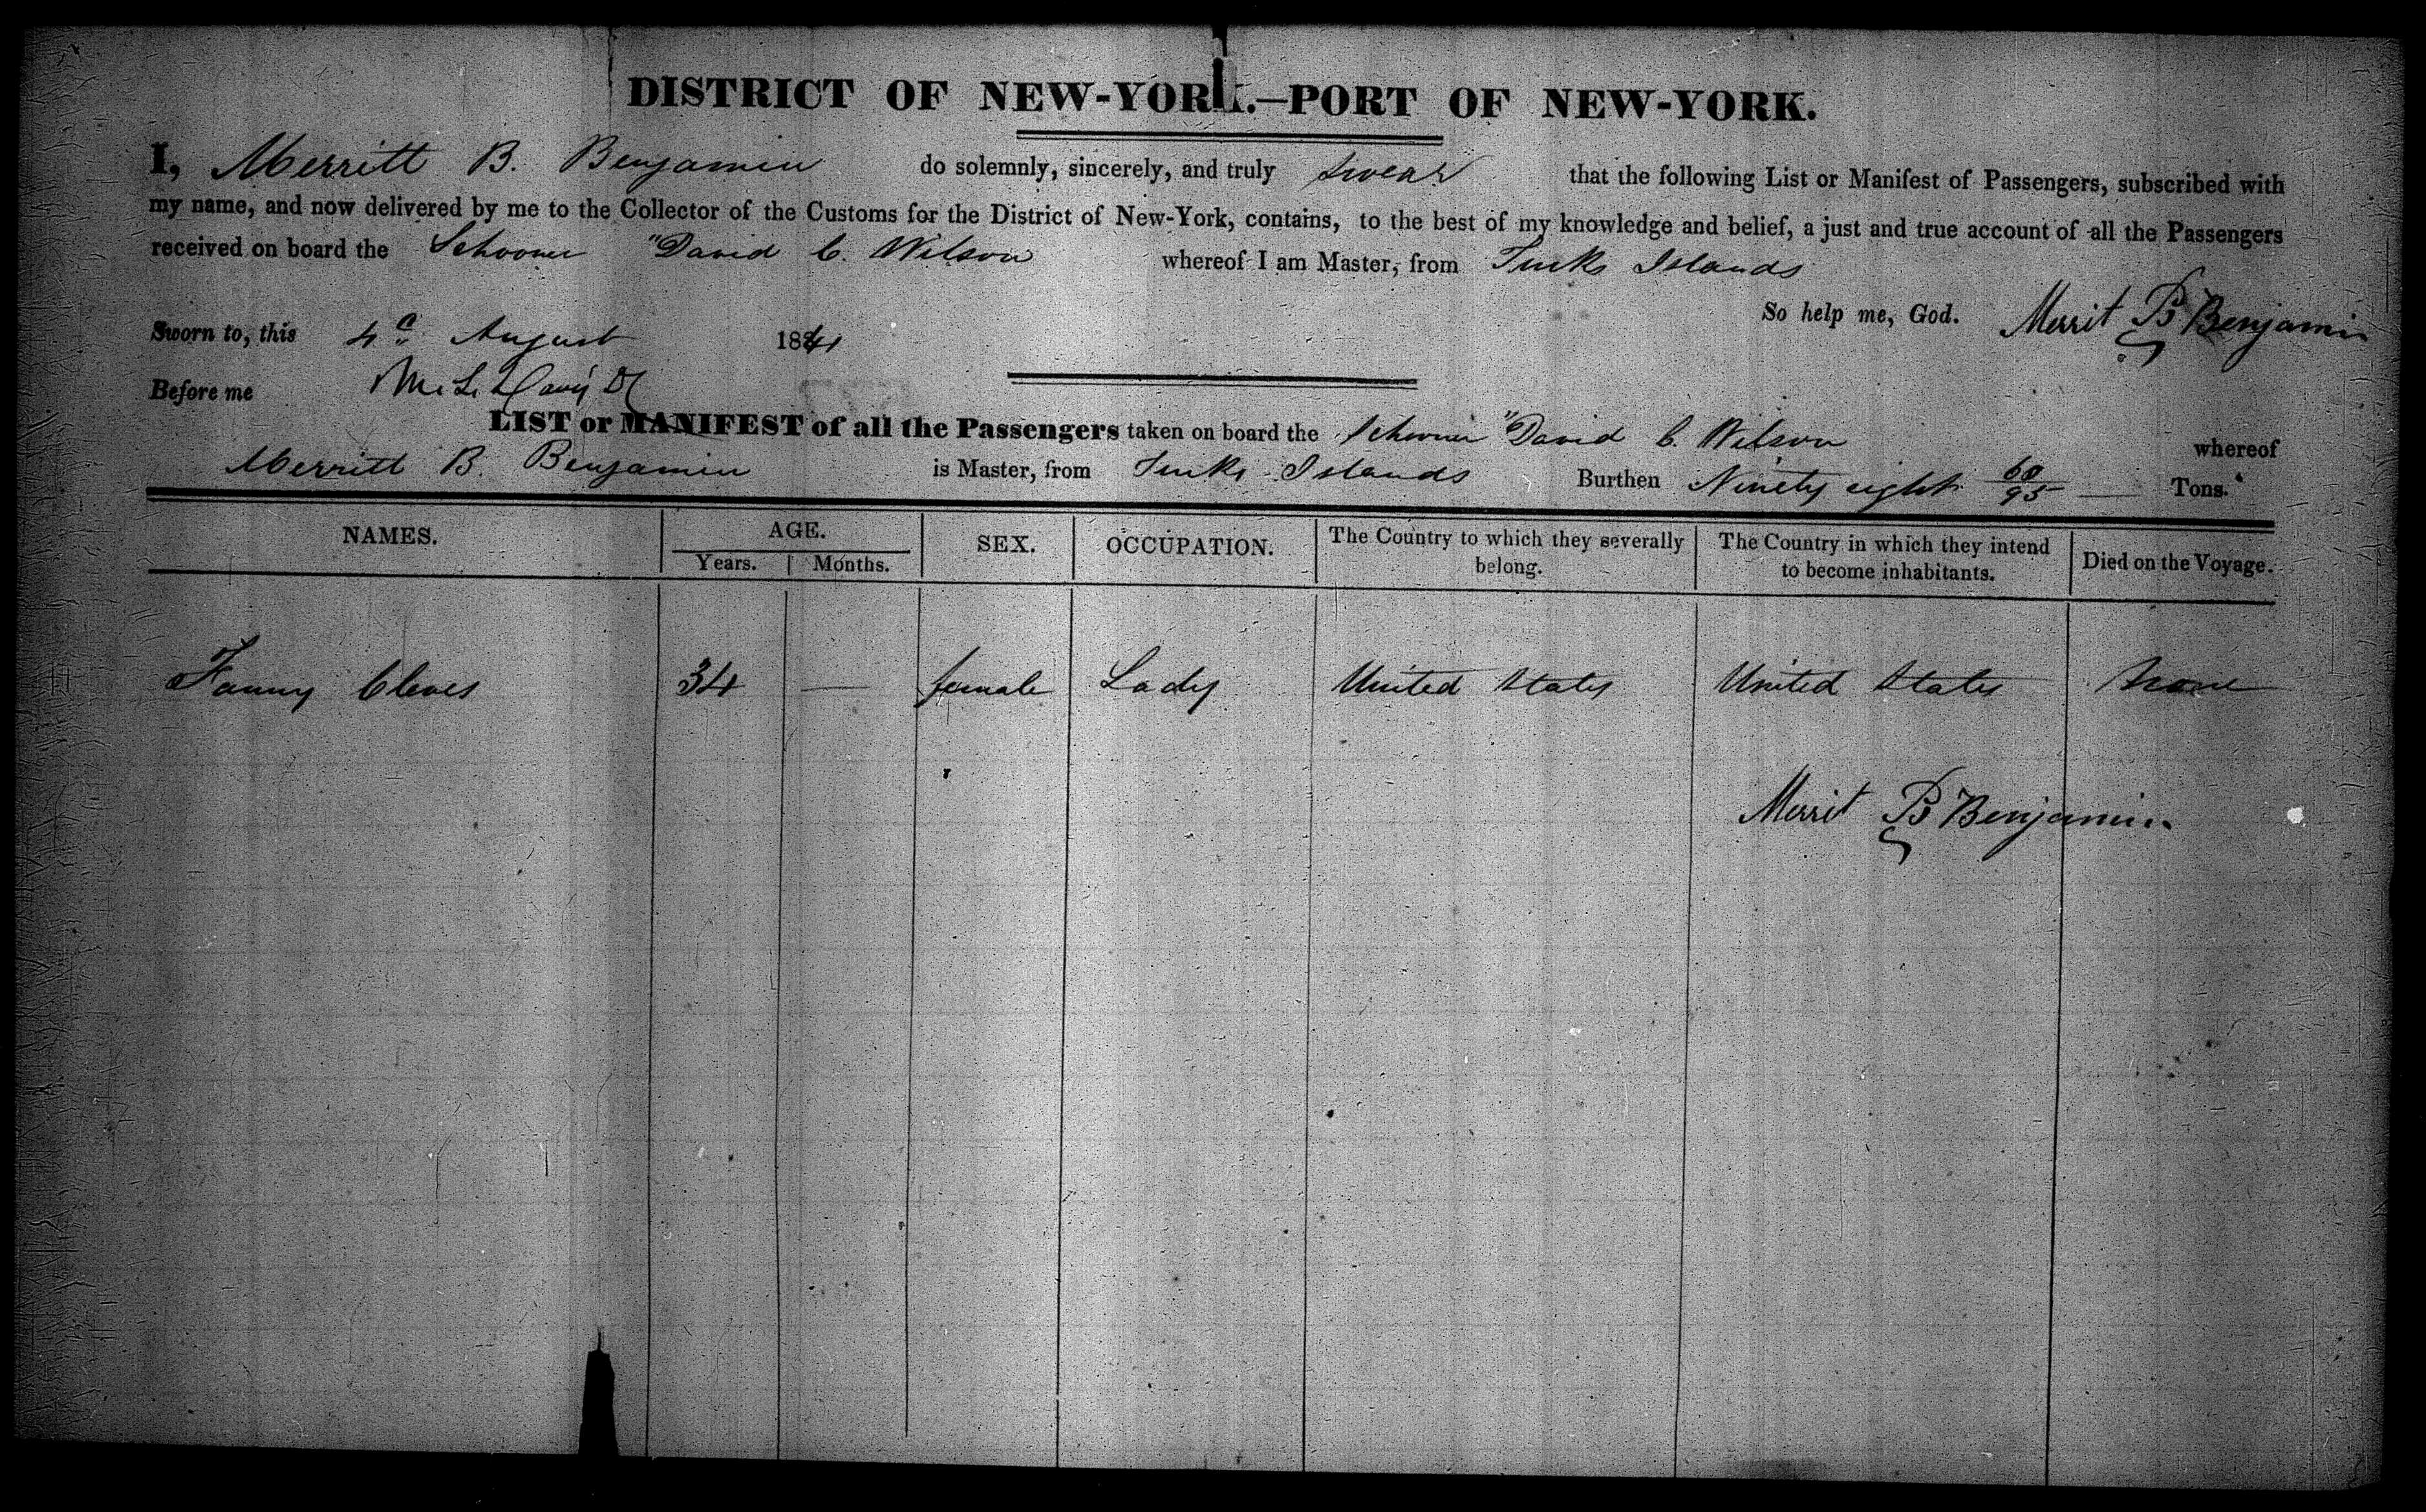 DISTRICT OF NEW-YORK.—PORT OF NEW-YORK.
I, Merritt B. Benjamin do solemnly, sincerely, and truly swear that the following List or Manifest of Passengers, subscribed with
my name, and now delivered by me to the Collector of the Customs for the District of New-York, contains, to the best of my knowledge and belief, a just and true account of all the Passengers
received on board the Schooner "David C. Wilson whereof I am Master, from Turks Islands
So help me, God. Merrit B Benjamin
Sworn to, this 4 August 1841
Before me
LIST or MANIFEST of all the Passengers taken on board the Schooner "David C. Wilson whereof
Merritt B. Benjamin is Master, from Turks Islands Burthen Ninety eight 60/95 Tons.
NAMES. AGE. SEX. OCCUPATION. The Country to which they severally belong. The Country in which they intend to become inhabitants. Died on the Voyage.
Years. Months.
Fanny Cleves 34 — female Lady United States United States None
Merrit B Benjamin